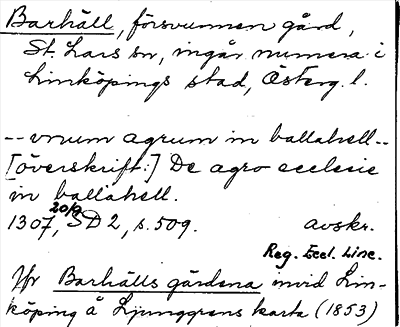 Barhäll, försvunnen gård,
St. Lars sn, ingår numera i
Linköpings stad, Österg. l.
-- vnum agrum in ballahell --
[överskrift:] De agro ecclesie
in ballahell.
1307 20/9, SD 2, s. 509. avskr.
Reg. Eccl. Linc.
Jfr Barhälls gärdena invid Lin-
köping å Ljunggrens karta (1853)